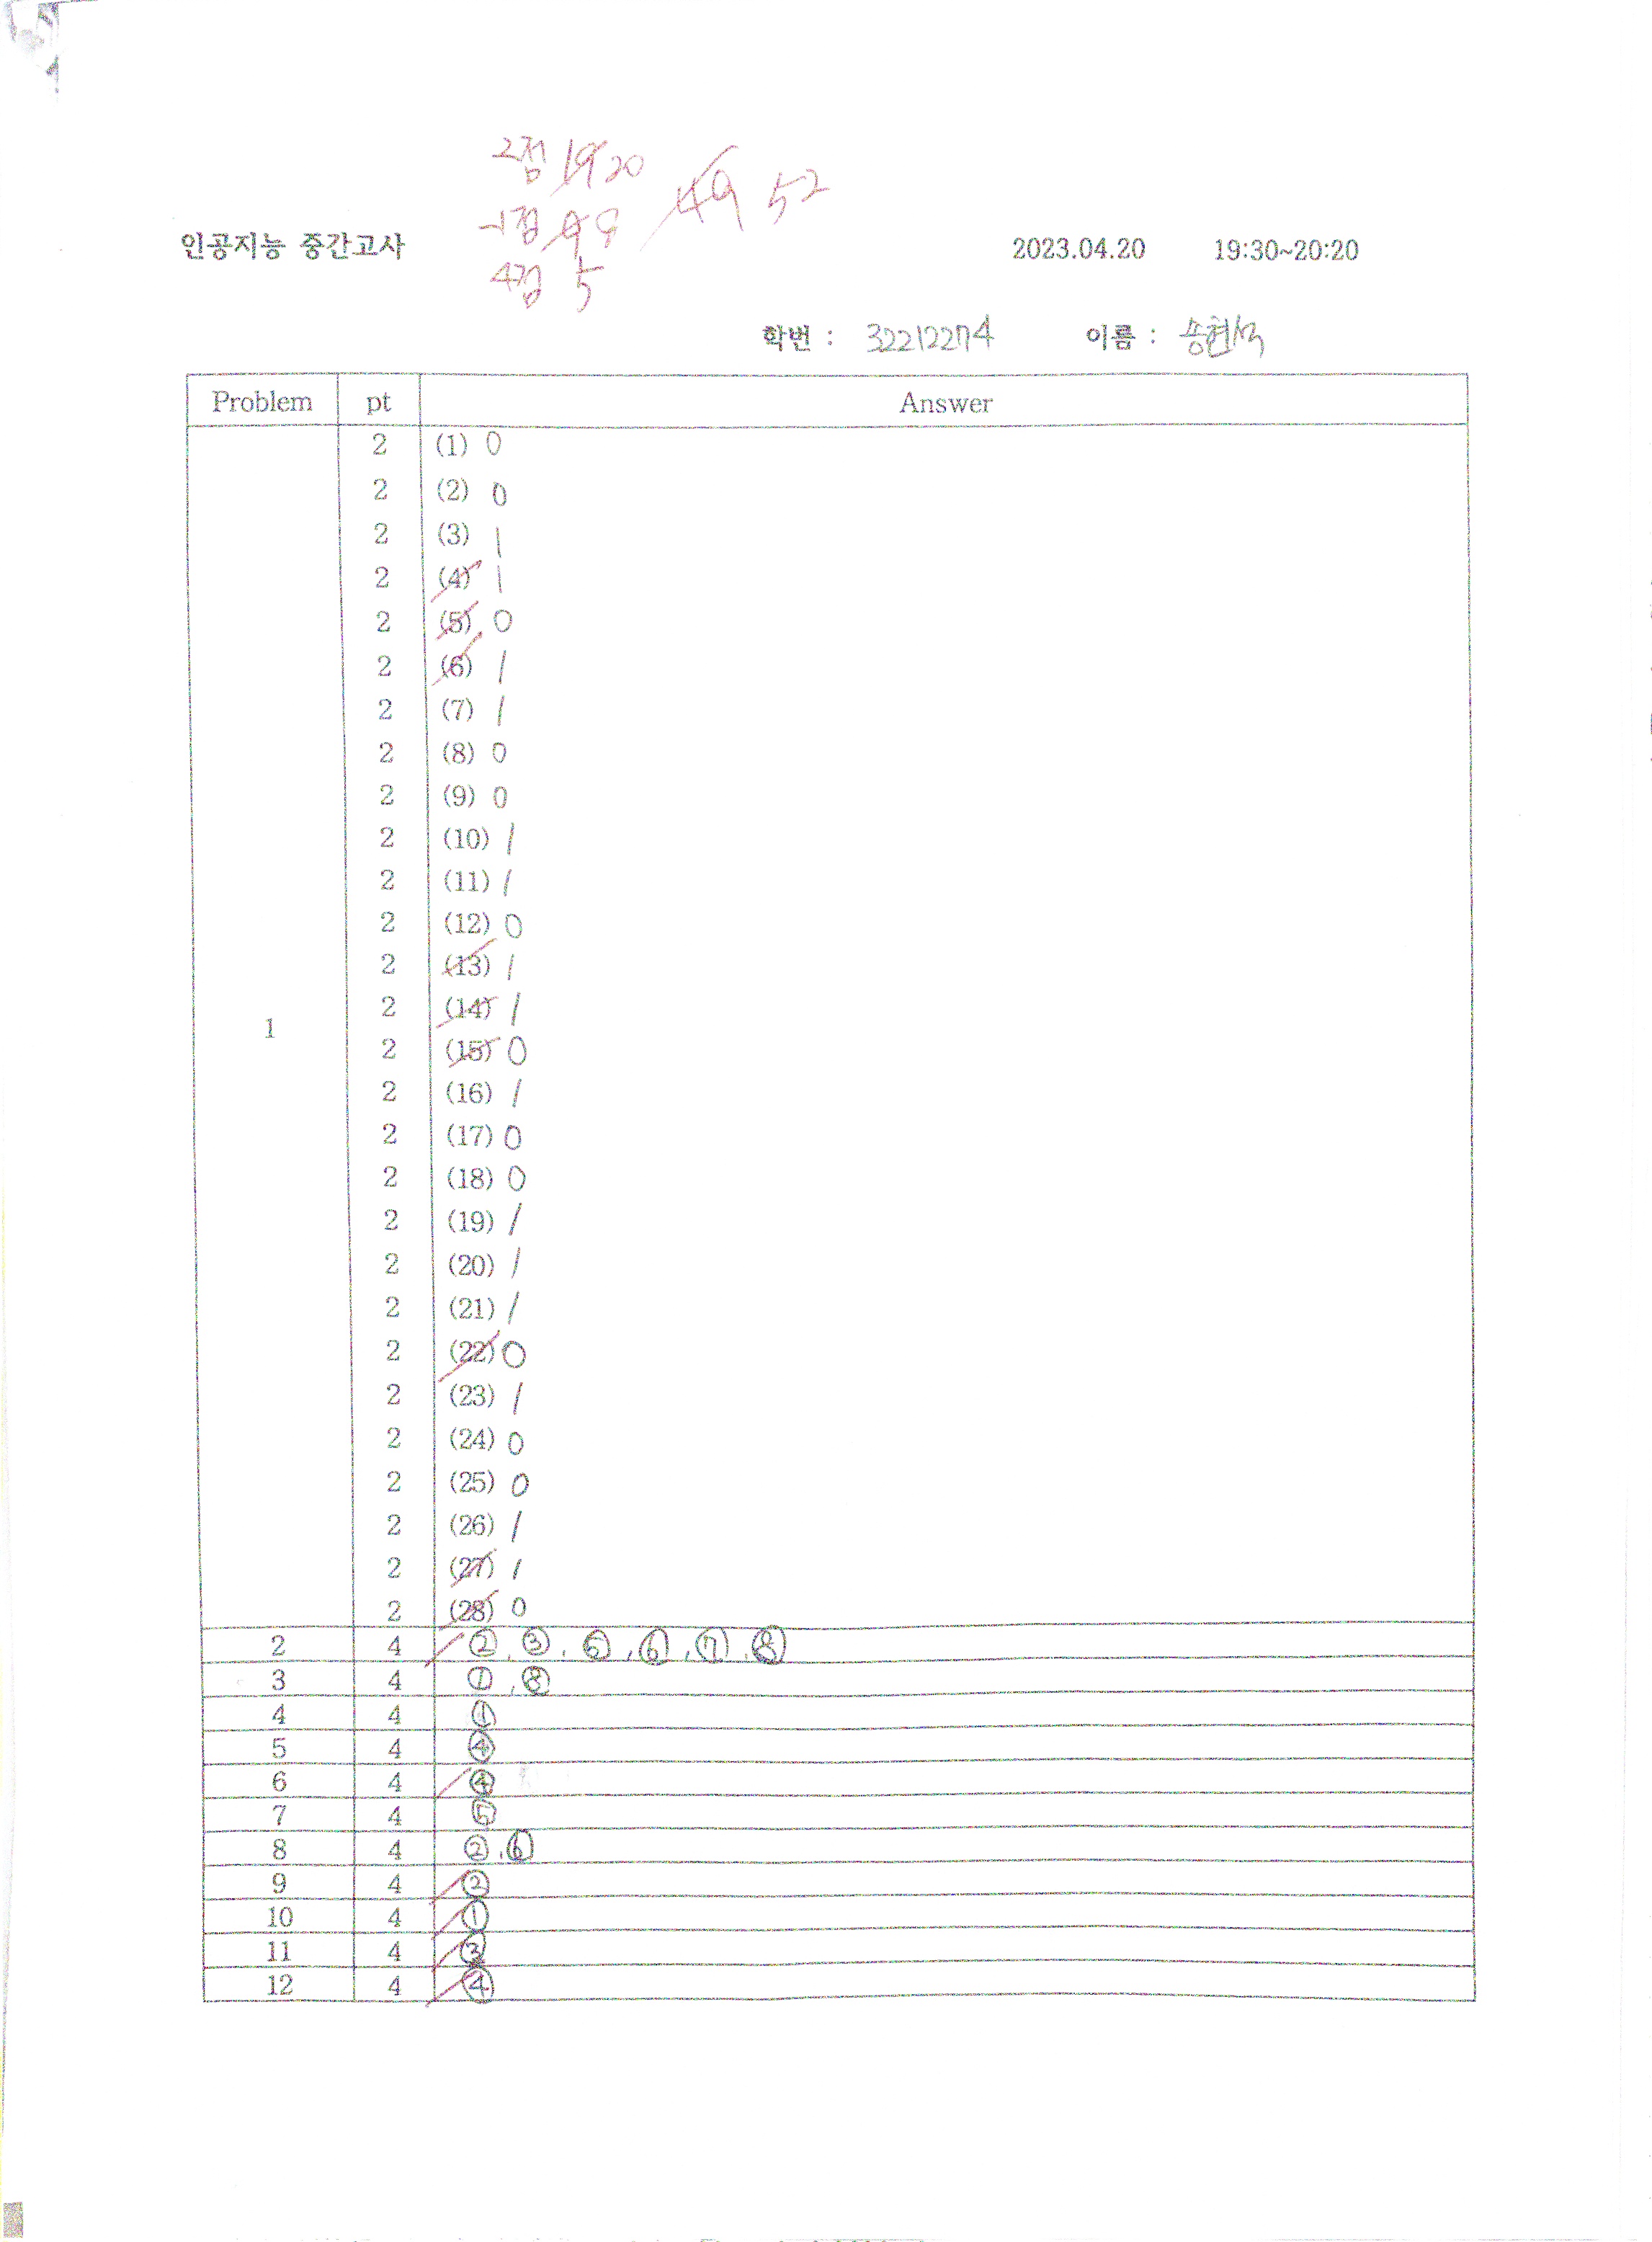 2점 19 20
-1점 9 8 49 52
4점 5
인공지능 중간고사 2023.04.20 19:30~20:20
학번 : 32212274 이름 : 송현석
Problem pt Answer
2 (1) 0
2 (2) 0
2 (3) 1
2 (4) 1
2 (5) 0
2 (6) 1
2 (7) 1
2 (8) 0
2 (9) 0
2 (10) 1
2 (11) 1
2 (12) 0
2 (13) 1
1 2 (14) 1
2 (15) 0
2 (16) 1
2 (17) 0
2 (18) 0
2 (19) 1
2 (20) 1
2 (21) 1
2 (22) 0
2 (23) 1
2 (24) 0
2 (25) 0
2 (26) 1
2 (27) 1
2 (28) 0
2 4 ②, ③, ⑤, ⑥, ⑦, ⑧
3 4 ①, ⑧
4 4 ①
5 4 ④
6 4 ④
7 4 ⑤
8 4 ②, ⑥
9 4 ②
10 4 ①
11 4 ③
12 4 ④